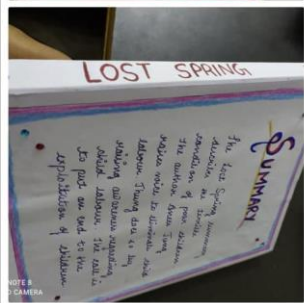 LOST SPRING
SUMMARY
The Lost Spring summary
describes the terrible
condition of poor children
The author Anees Jung
raises voice to eliminate child
labour Thung does so by
raising awareness regarding
child labour. The call is
to put an end to the
exploitation of children
NOTE 8
CAMERA